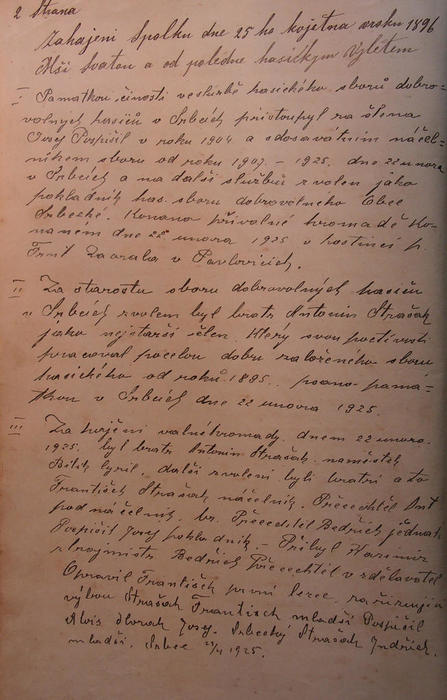 2 Strana
Zahájení Spolku dne 25ho května roku 1896
Mší svatou a od poledne hasičkým Výletem
I Pamatkou činosti veskerké hasického sborů dobro-
volnych hasičů v Srbcích přistoupyl za člena
Josef Pospíšil v roku 1904 a odosavátním náčel-
níkem sboru od roku 1907. – 1925. dne 22 unora
v Srbcích a na další službů zvolen jako
pokladník has. sboru dobrovolneho Obce
Srbecké. Konano při valné hromadě Ko-
nanem dne 22 unora 1925 v hostinci p.
Frant Zaorala v Pavlovicích.
II Za starostu sboru dobrovolných hasičů
v Srbcích zvolem byl bratr Antonin Strašák
jako nejstarší člen. Který svou poctivostí
pracoval pocelou dobu založeného sboru
hasického od roků 1895. psano pamá-
tkou v Srbcích dne 22 unora 1925.
III Za hajení valné hromady. dnem 22 unora.
1925. byl bratr Antonin Strašak. naměstek
Bitík Cyril. další zvolení byli bratři a to
František Strašák náčelník. Přecechtěl Ant
podnáčelník. br. Přecechtěl Bedřich jednatel
Pospíšil Josef pokladník – Přibyl Kazimír
strojmistr Bedřich Přecechtěl vzdělavatel
Opravil František první lezec. zařizující
výbou Strašak Frantisek mladší Pospíšil
Alois Horak Josef. Srbecký Strašák Jndřich.
mladší. Srbce 1925.